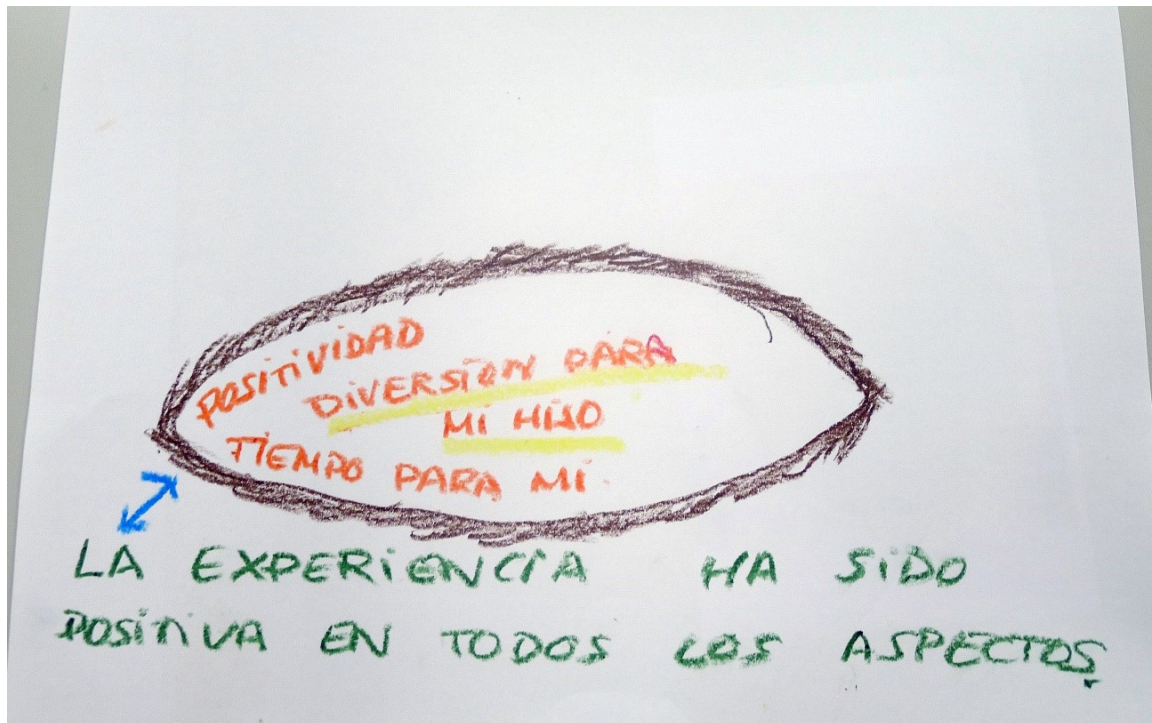 POSITIVIDAD
DIVERSIÓN PARA
MI HIJO
TIEMPO PARA MI.
LA EXPERIENCIA HA SIDO
POSITIVA EN TODOS LOS ASPECTOS.